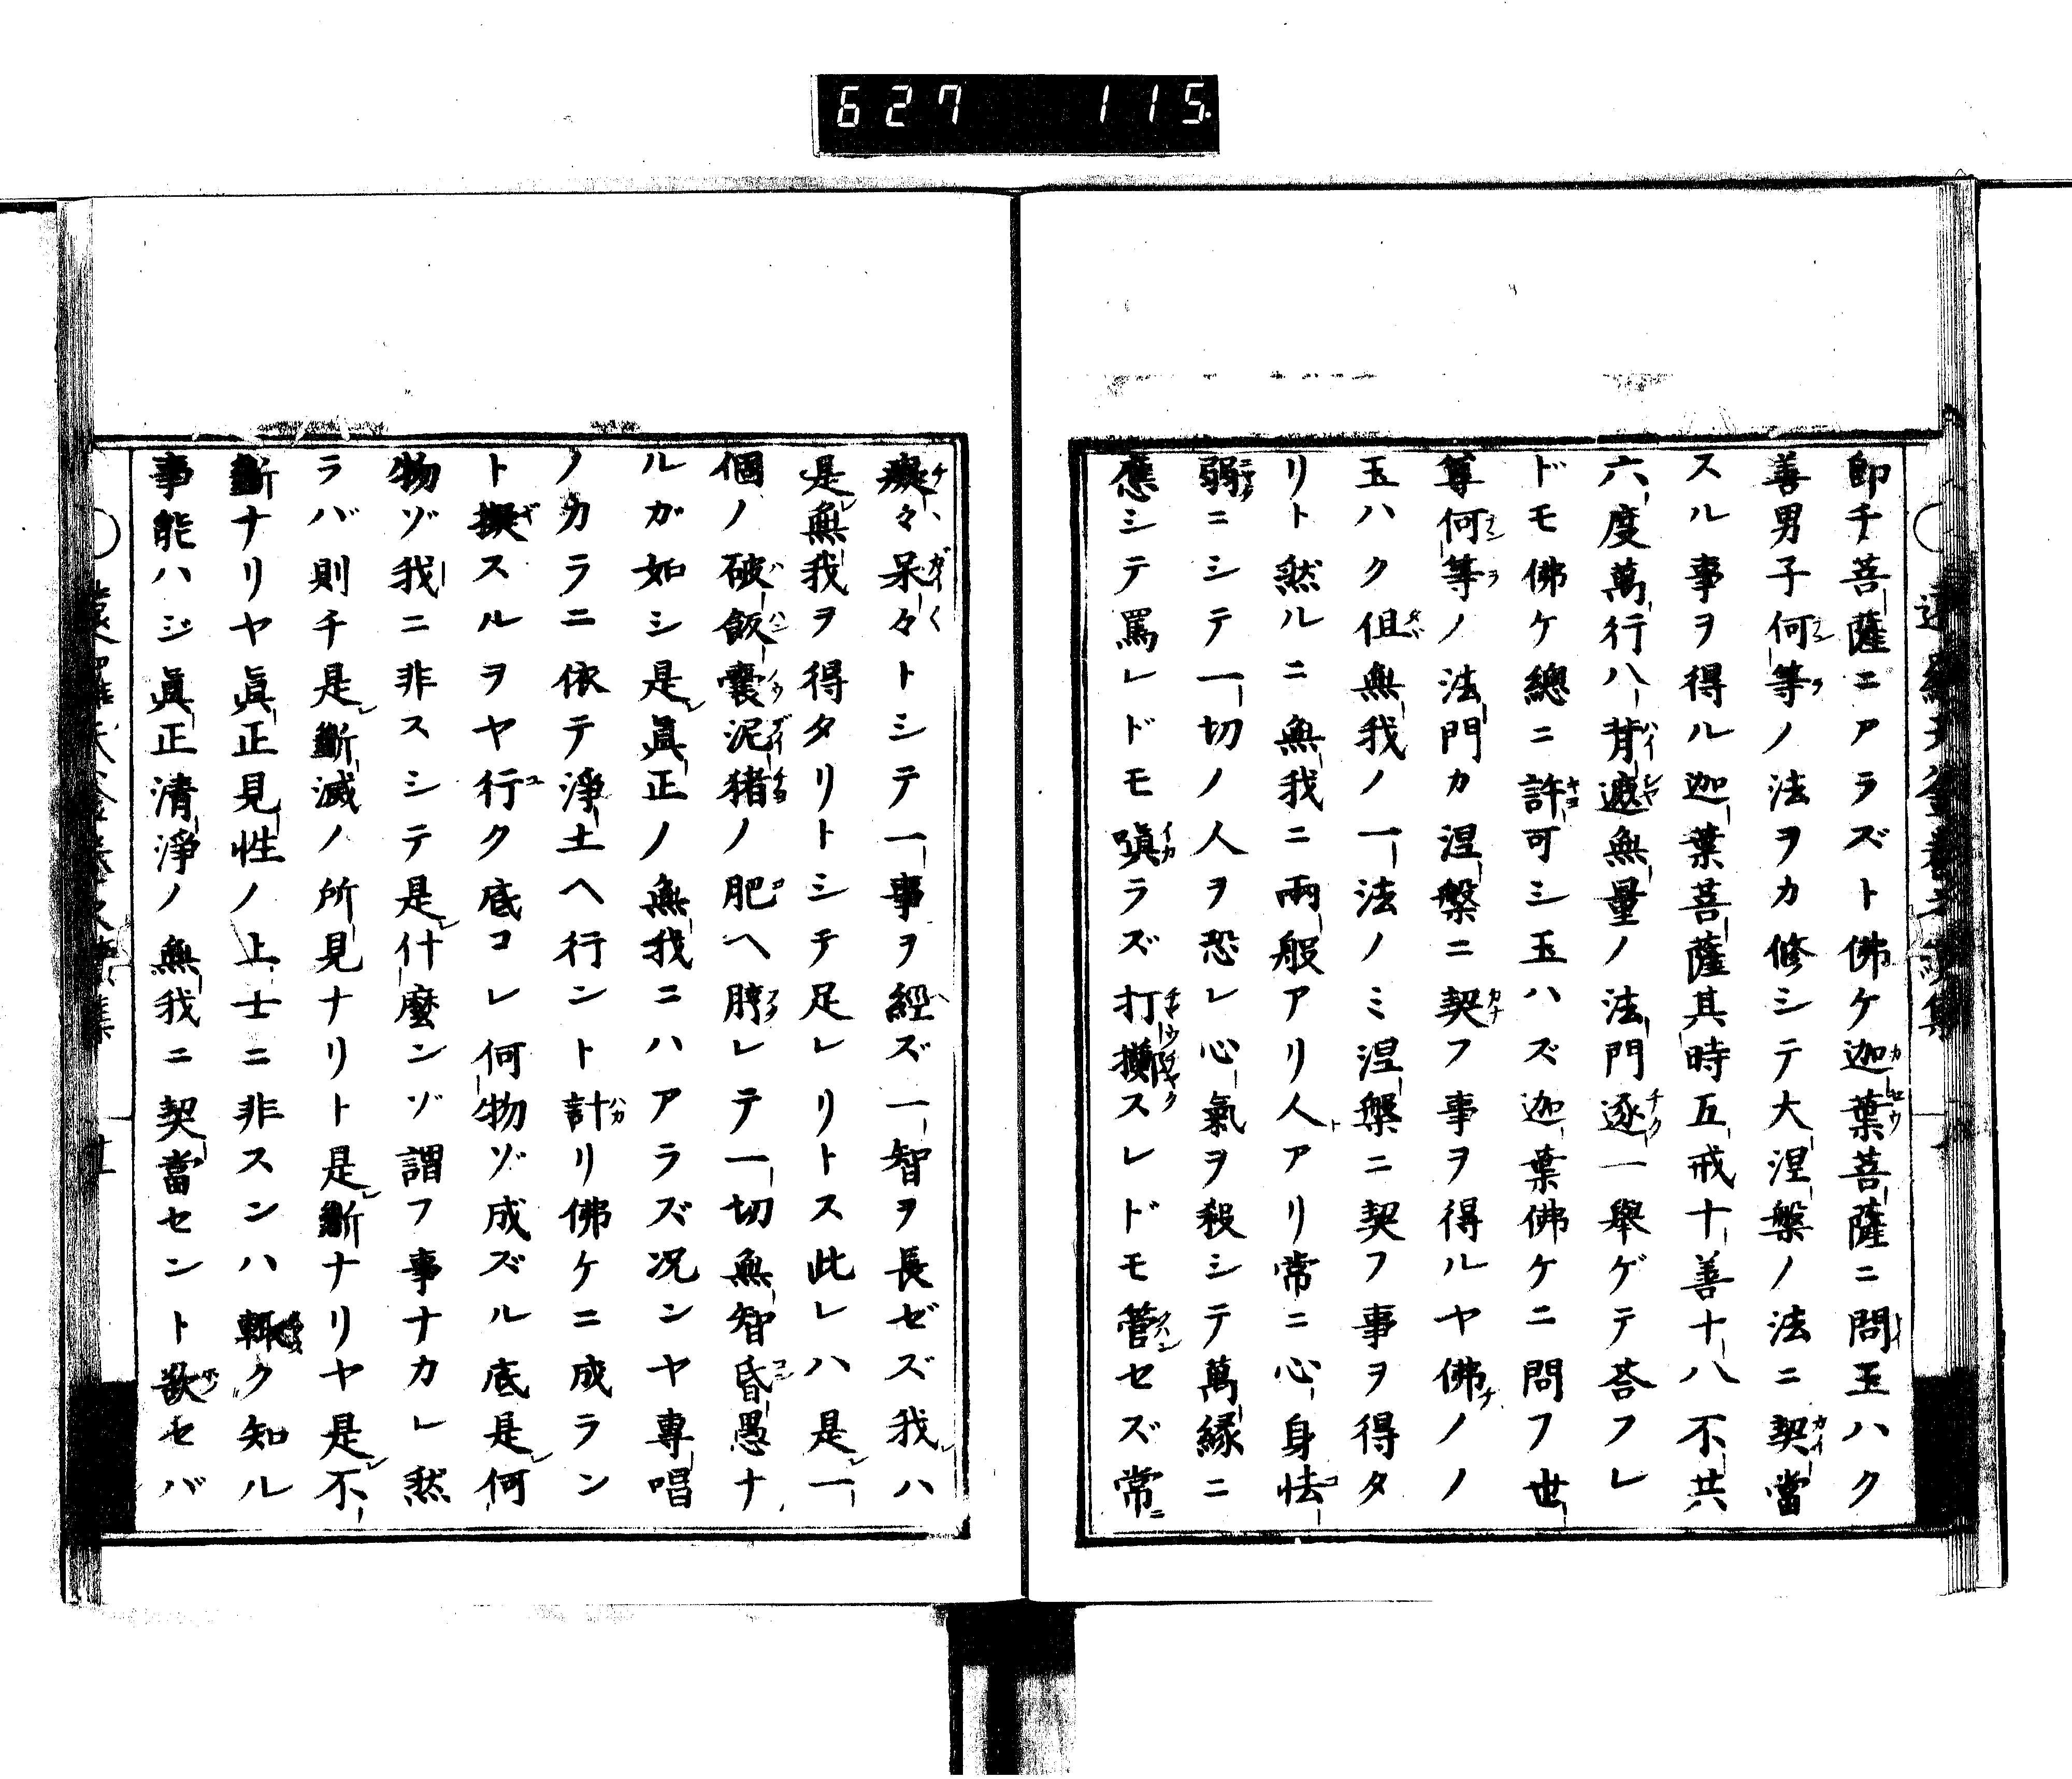 627 115
即チ菩薩ニアラズト佛ケ迦葉菩薩ニ問玉ハク
善男子何等ノ法ヲカ修シテ大涅槃ノ法ニ契當
スル事ヲ得ル迦葉菩薩其時五戒十善十八不共
六度萬行八背遮無量ノ法門逐一舉ゲテ荅フレ
ドモ佛ケ總ニ許可シ玉ハズ迦葉佛ケニ問フ世
尊何等ノ法門カ涅槃ニ契フ事ヲ得ルヤ佛ノノ
玉ハク但無我ノ一法ノミ涅槃ニ契フ事ヲ得タ
リト然ルニ無我ニ兩般アリ人アリ常ニ心身怯
弱ニシテ一切ノ人ヲ恐レ心氣ヲ殺シテ萬縁ニ
應シテ罵レドモ嗔ラズ打擲スレドモ管セズ常ニ
癡々呆々トシテ一事ヲ經ズ一智ヲ長ゼズ我ハ
是無我ヲ得タリトシテ足レリトス此レハ是一
個ノ破飯囊泥猪ノ肥ヘ脝レテ一切無智昏愚ナ
ルガ如シ是眞正ノ無我ニハアラズ况ンヤ專唱
ノカラニ依テ淨土ヘ行ント計リ佛ケニ成ラン
ト擬スルヲヤ行ク底コレ何物ゾ成ズル底是何
物ゾ我ニ非スシテ是什麼ンゾ謂フ事ナカレ然
ラバ則チ是斷滅ノ所見ナリト是斷ナリヤ是不
斷ナリヤ眞正見性ノ上士ニ非スンハ輙ク知ル
事能ハジ眞正清淨ノ無我ニ契當セント欲セバ